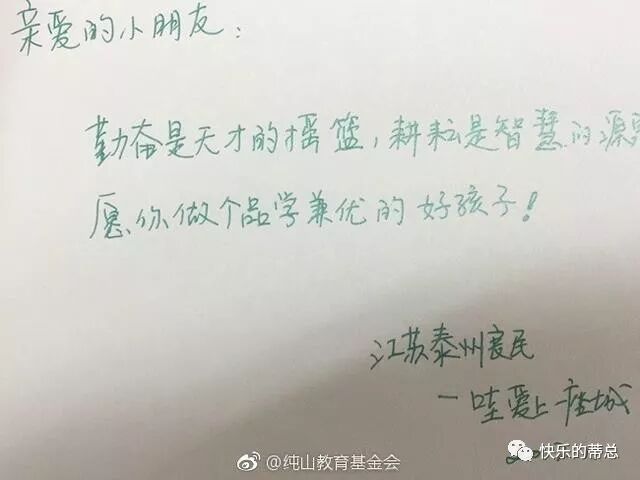 亲爱的小朋友：
勤奋是天才的摇篮，耕耘是智慧的源
愿你做个品学兼优的好孩子！
江苏泰州良民
一哇爱上一座城
@纯山教育基金会
快乐的蒂总